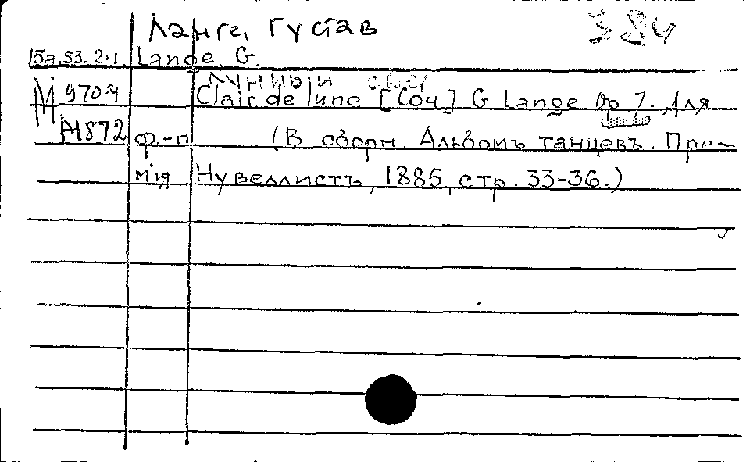 Ланге, Густав 384
15а.53.2.1 Lange, G.
Лунный свет
М 970л Clair de lune [Соч.] G Lange Op 7. Для
М872 ф.-п (В сборн. Альбомъ танцевъ. При-
мiя Нувеллистъ, 1885, стр. 33-36.)